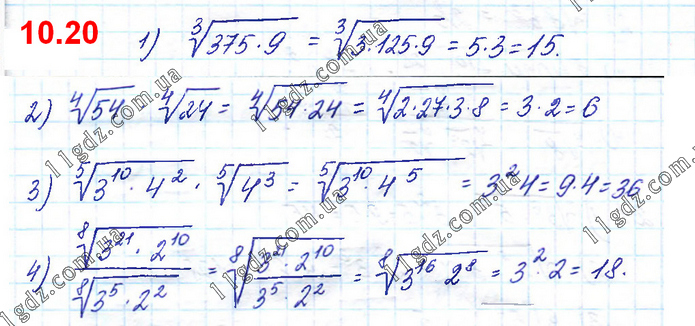 10.20
1) ∛(375·9) = ∛(3·125·9) = 5·3 = 15.
2) ⁴√54 · ⁴√24 = ⁴√(54·24) = ⁴√(2·27·3·8) = 3·2 = 6
3) ⁵√(3¹⁰·4²) · ⁵√(4³) = ⁵√(3¹⁰·4⁵) = 3²4 = 9·4 = 36
4) ⁸√(3²¹·2¹⁰) / ⁸√(3⁵·2²) = ⁸√((3²¹·2¹⁰) / (3⁵·2²)) = ⁸√(3¹⁶ 2⁸) = 3²·2 = 18.
11gdz.com.ua
11gdz.com.ua
11gdz.com.ua
11gdz.com.ua
11gdz.com.ua
11gdz.com.ua